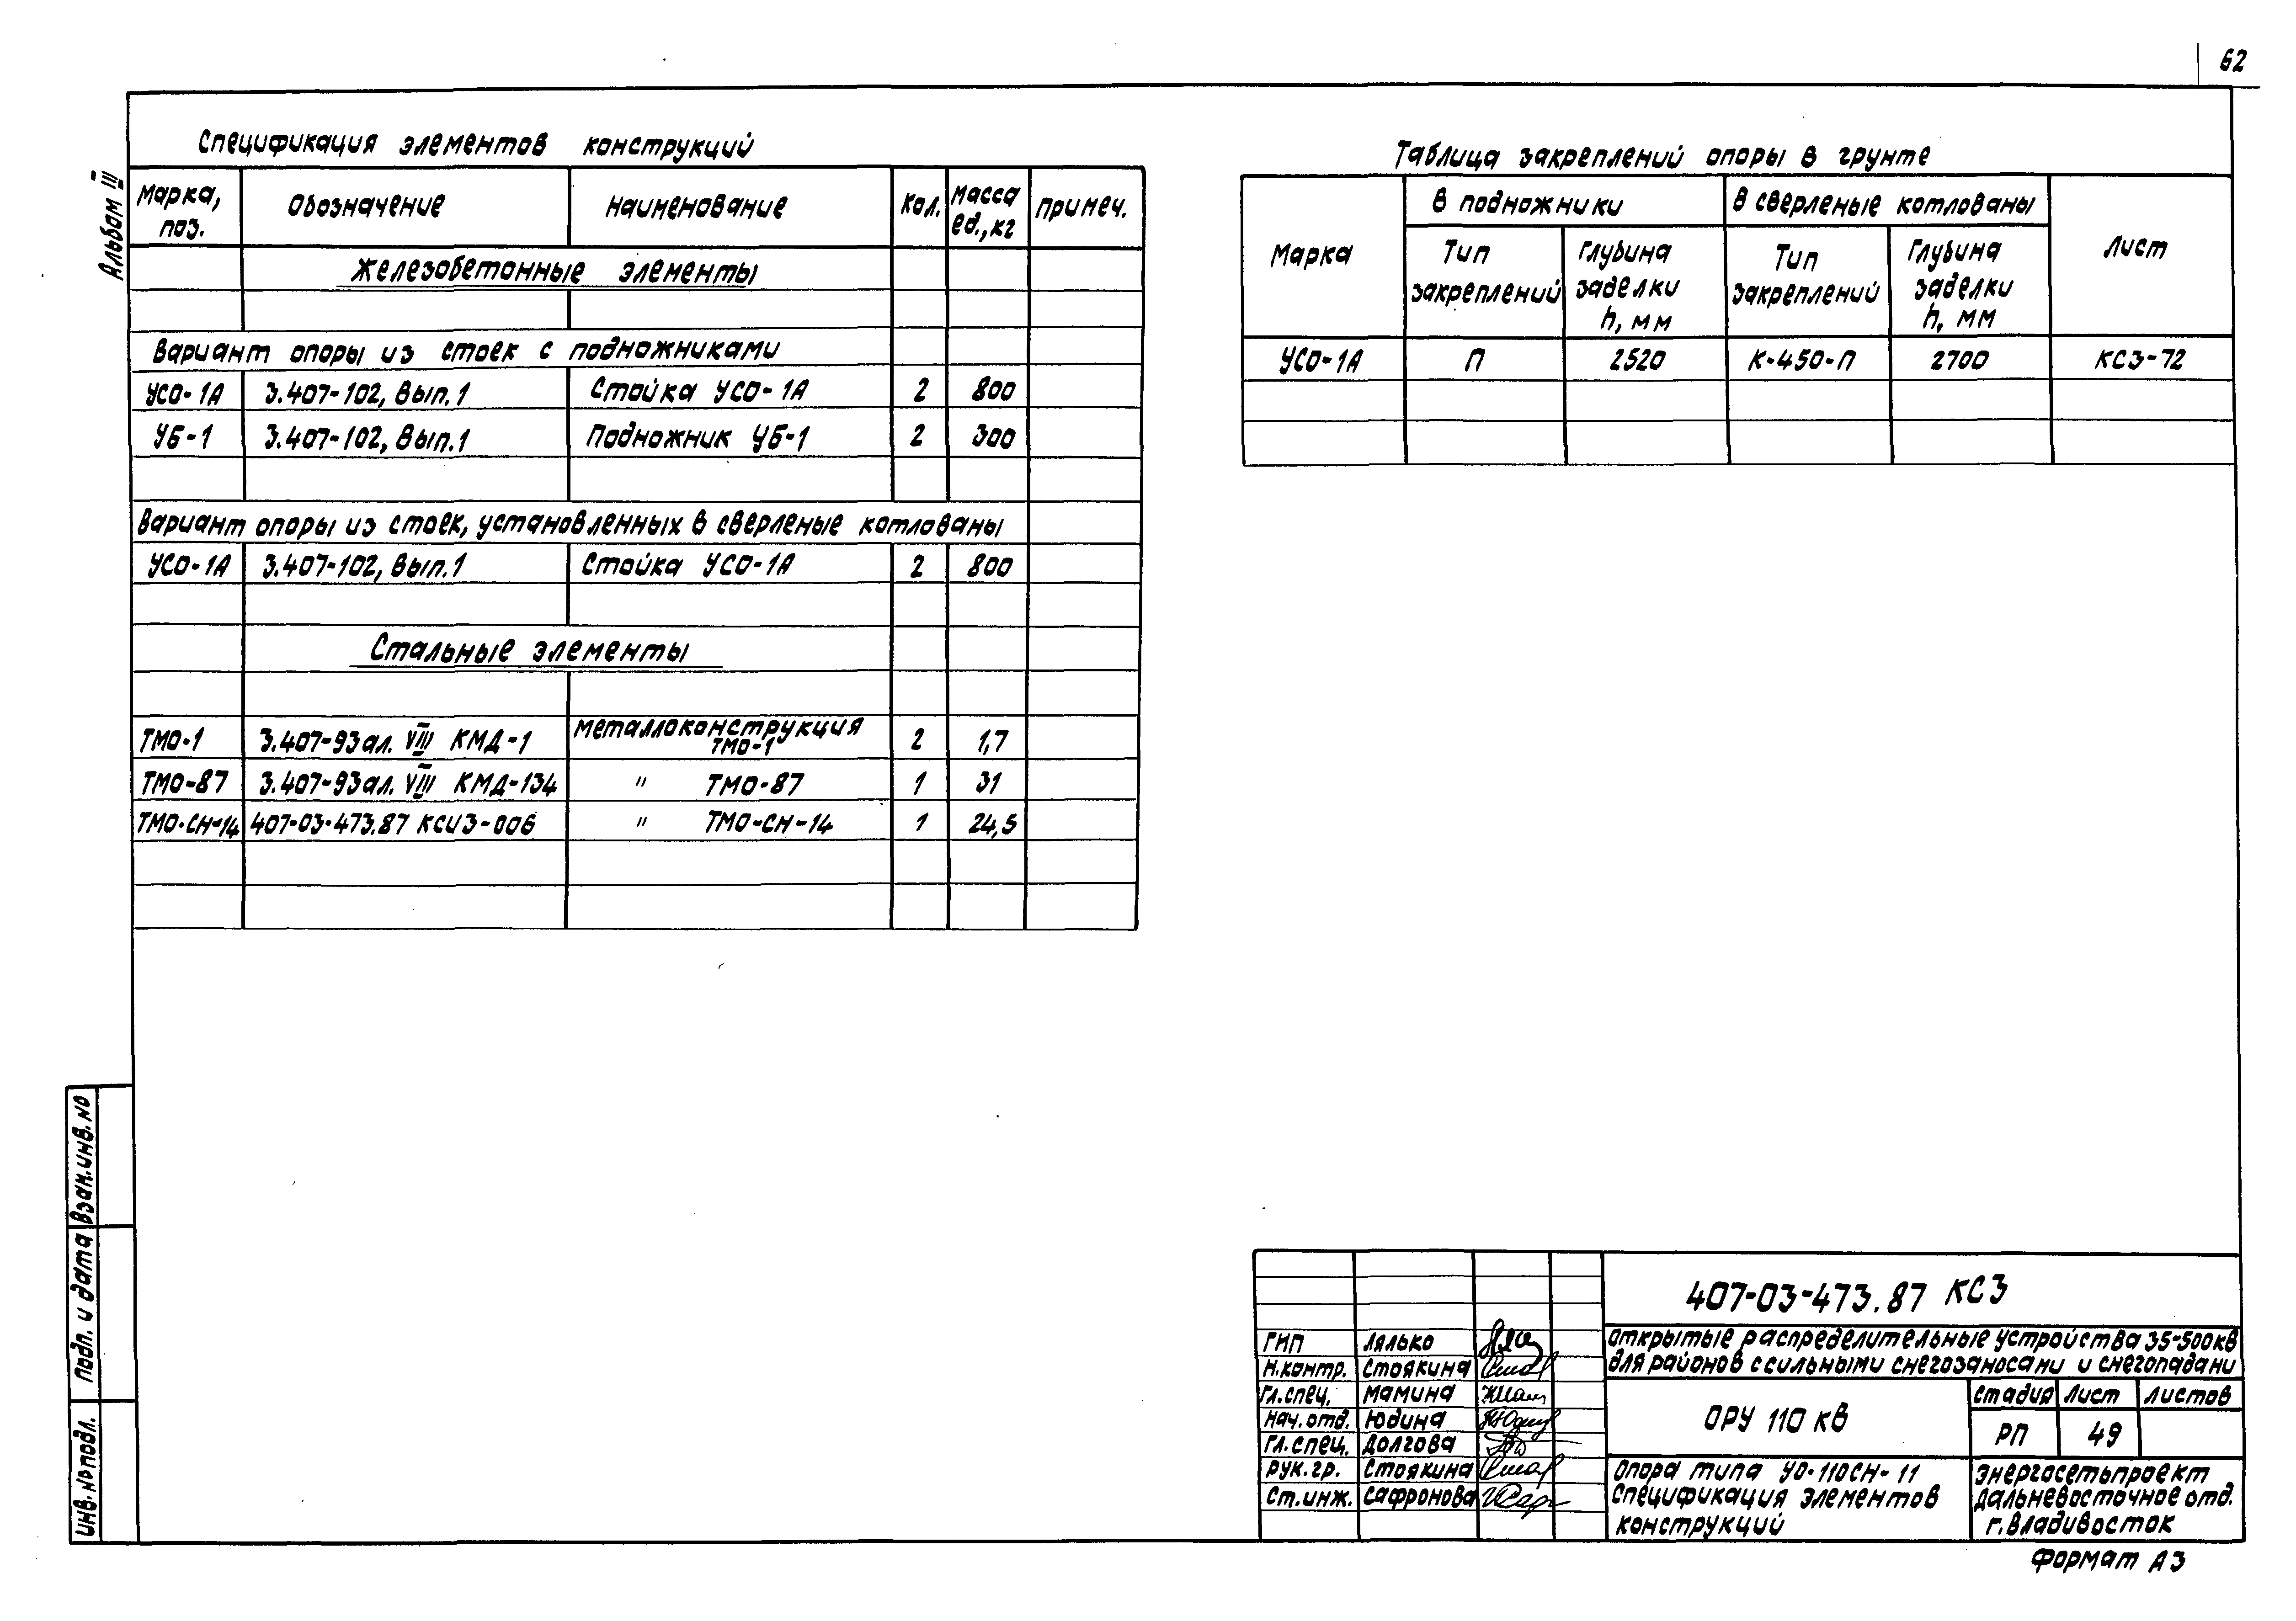 62
Альбом III
Спецификация элементов конструкций
Марка, поз. Обозначение Наименование Кол. Масса ед., кг Примеч.
Железобетонные элементы
Вариант опоры из стоек с подножниками
УСО-1А 3.407-102, вып.1 Стойка УСО-1А 2 800
УБ-1 3.407-102, вып.1 Подножник УБ-1 2 300
Вариант опоры из стоек, установленных в сверленые котлованы
УСО-1А 3.407-102, вып.1 Стойка УСО-1А 2 800
Стальные элементы
ТМО-1 3.407-93 ал. VIII КМД-1 Металлоконструкция ТМО-1 2 1,7
ТМО-87 3.407-93 ал. VIII КМД-134 " ТМО-87 1 31
ТМО-СН-14 407-03-473.87 КСИ3-006 " ТМО-СН-14 1 24,5
Таблица закреплений опоры в грунте
Марка В подножники В сверленые котлованы Лист
Тип закреплений Глубина заделки h, мм Тип закреплений Глубина заделки h, мм
УСО-1А П 2520 К-450-П 2700 КС3-72
Взам.инв.№
Подп. и дата
Инв.№ подл.
ГИП Лялько
Н.контр. Стоякина
Гл.спец. Мамина
Нач.отд. Юдина
Гл.спец. Долгова
Рук.гр. Стоякина
Ст.инж. Сафронова
407-03-473.87 КС3
Открытые распределительные устройства 35-500кВ
для районов с сильными снегозаносами и снегопадами
ОРУ 110 кВ
Стадия Лист Листов
РП 49
Опора типа УО-110СН-11
Спецификация элементов
конструкций
Энергосетьпроект
Дальневосточное отд.
г.Владивосток
Формат А3